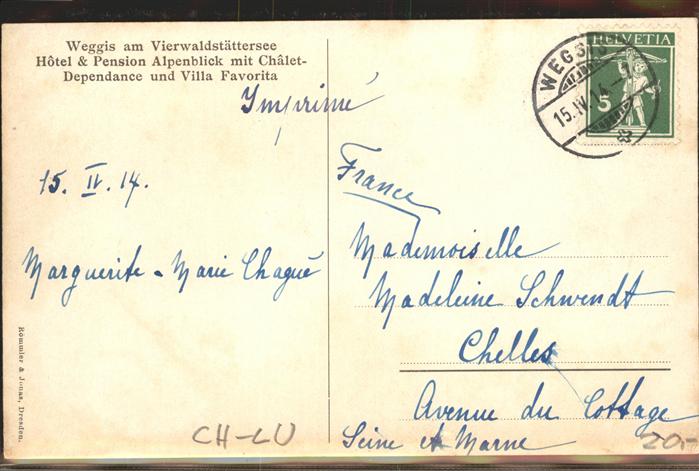 Weggis am Vierwaldstättersee
Hôtel & Pension Alpenblick mit Châlet-
Dependance und Villa Favorita
Imprimé
15. IV. 14.
Marguerite-Marie Chagué
Römmler & Jonas, Dresden.
CH-LU
HELVETIA
5
WEGGIS
15.IV.14
France
Mademoiselle
Madeleine Schwendt
Chelles
Avenue du Cottage
Seine et Marne
20.-